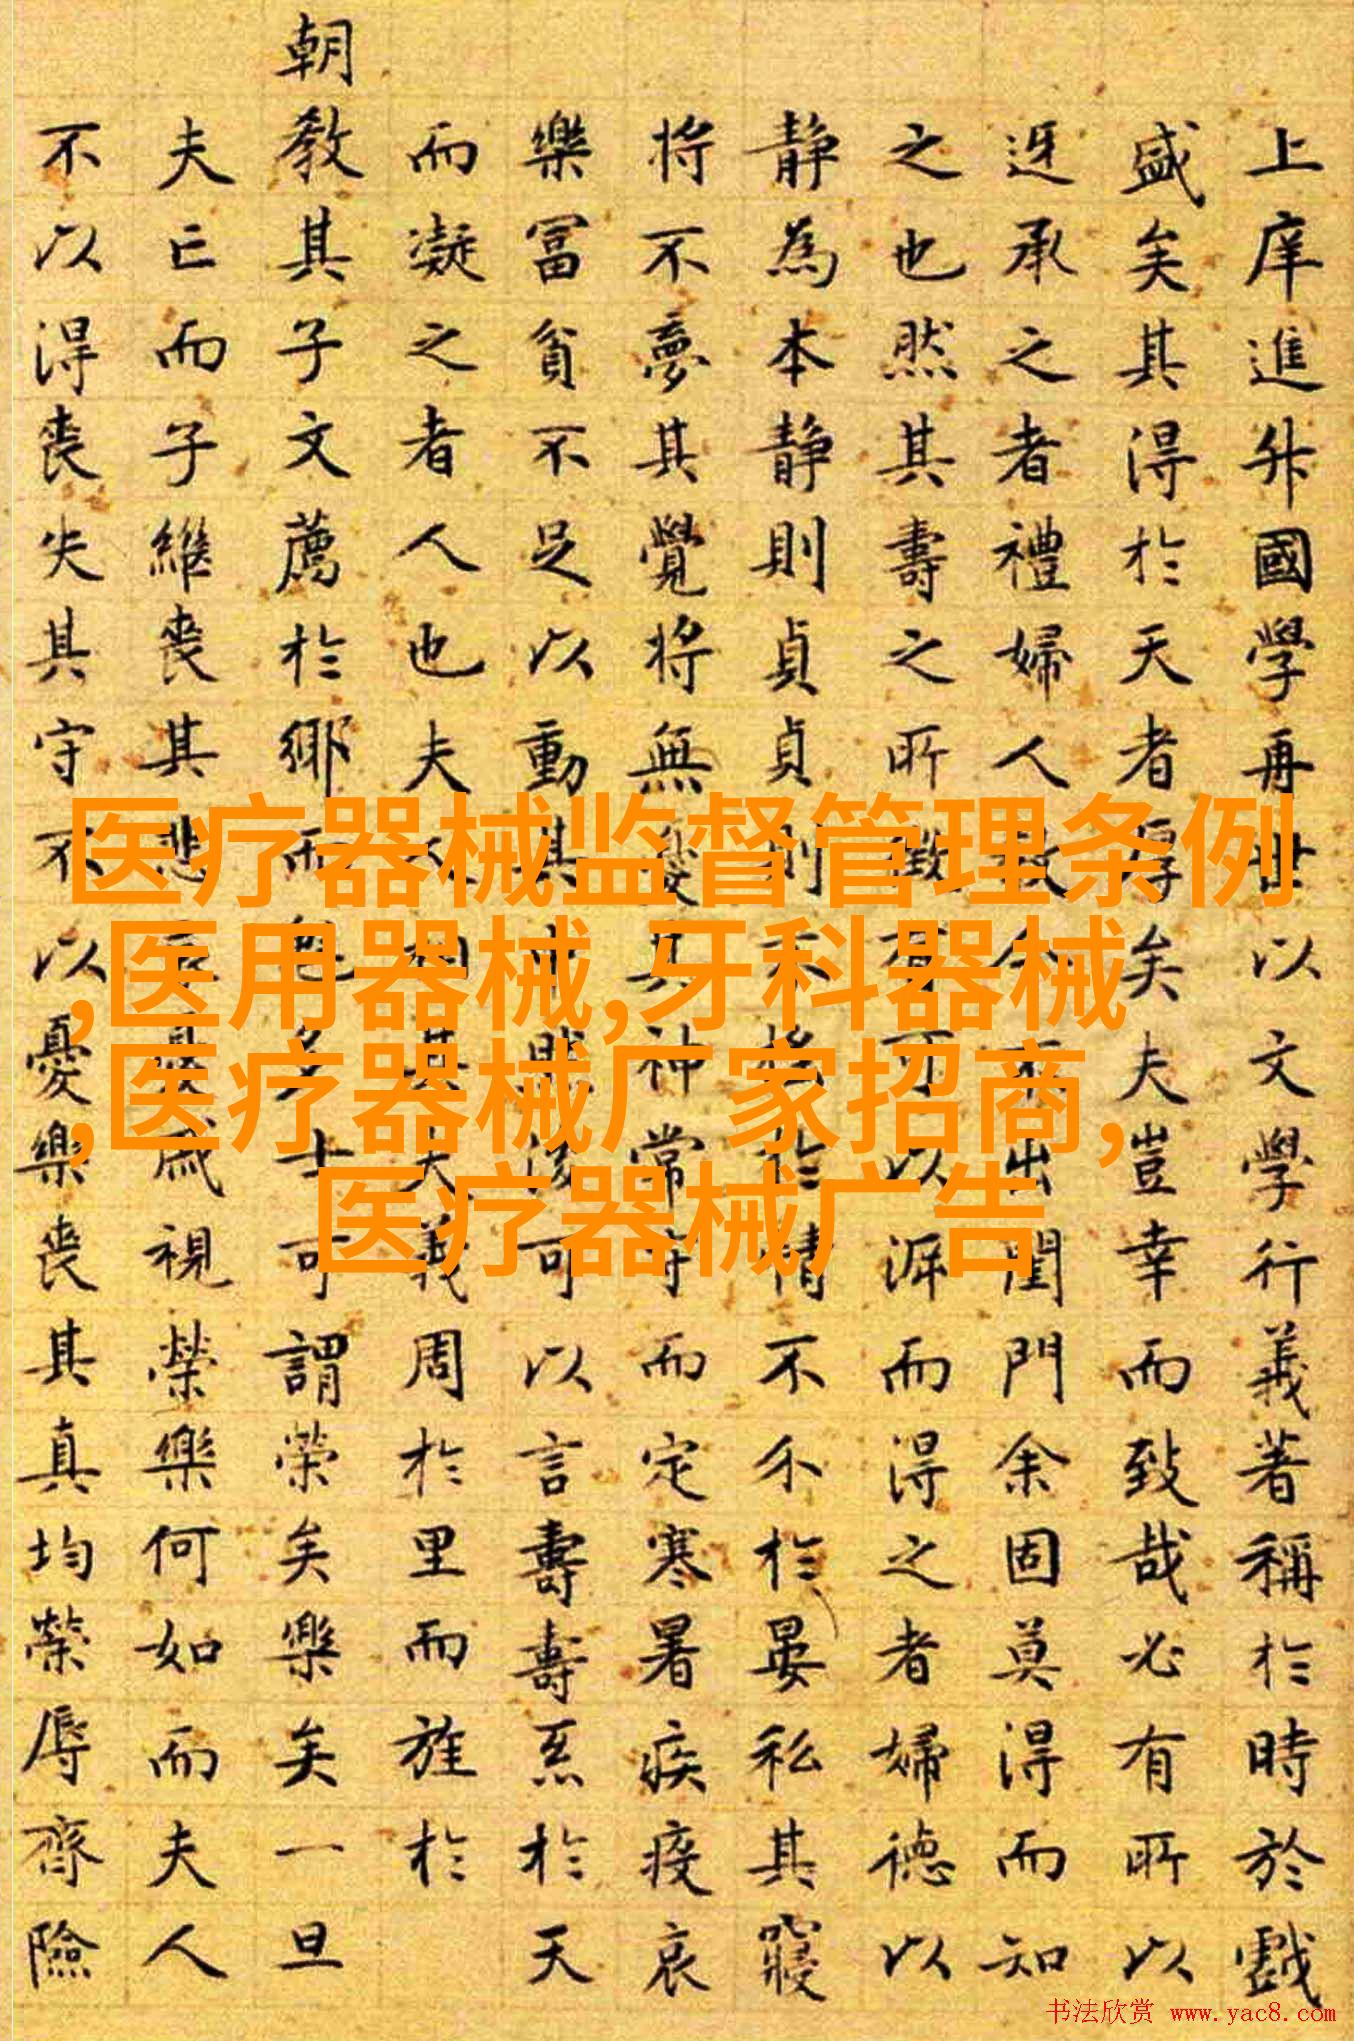 上庠進升國學再世以文學行義著稱於時於戲
盛矣其得於天者厚矣夫豈幸而致哉必有所以
迓承之者禮婦人教令不出閨門余固莫得而知
之也然其壽之所有可以而得之者婦德以
静為本静則貞貞則不於情不尒於晏私其寢
将不夢其覺将無憂其神常守而定寒暑疾疫哀
樂冨貧不足以動其中然後可以言壽壽系於天
而凝之者人也夫人相其夫義周於里而旌於
朝教其子文薦於鄉而多士可謂榮矣樂矣一旦
夫亡而子繼喪其悲哀憂戚視榮樂何如而夫人
不以得喪失其守不以憂樂喪其真均榮辱齊險
医疗器械监督管理条例
,医用器械,牙科器械
,医疗器械厂家招商,
医疗器械广告
书法欣赏 www.yac8.com